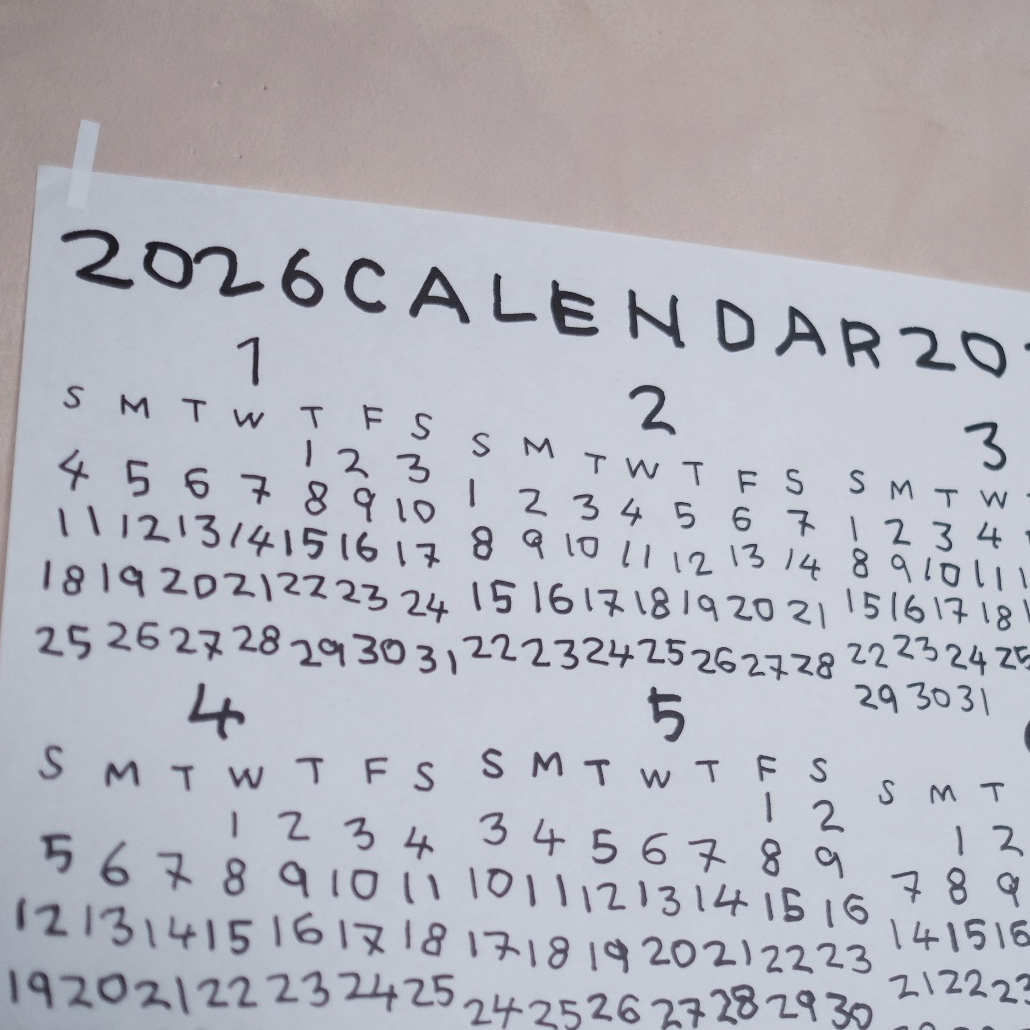 2026 CALENDAR 20
1
S M T W T F S
1 2 3
4 5 6 7 8 9 10
11 12 13 14 15 16 17
18 19 20 21 22 23 24
25 26 27 28 29 30 31
2
S M T W T F S
1 2 3 4 5 6 7
8 9 10 11 12 13 14
15 16 17 18 19 20 21
22 23 24 25 26 27 28
3
S M T W
1 2 3 4
8 9 10 11
15 16 17 18
22 23 24 25
29 30 31
4
S M T W T F S
1 2 3 4
5 6 7 8 9 10 11
12 13 14 15 16 17 18
19 20 21 22 23 24 25
5
S M T W T F S
1 2
3 4 5 6 7 8 9
10 11 12 13 14 15 16
17 18 19 20 21 22 23
24 25 26 27 28 29 30
S M T
1 2
7 8 9
14 15 16
21 22 23